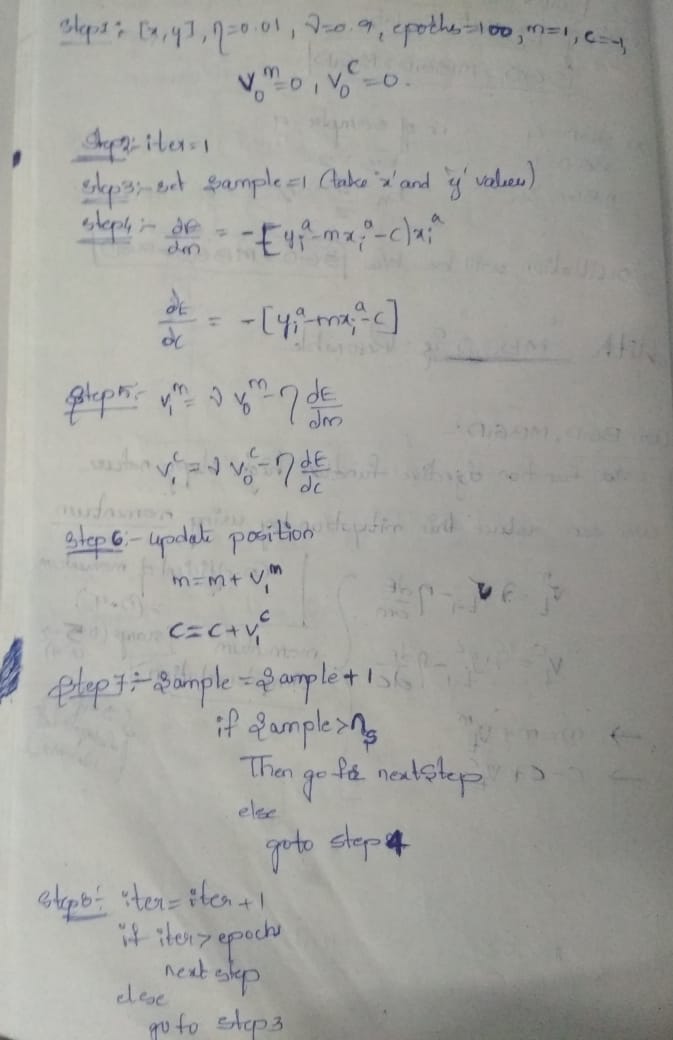 Step1: [x, y], η=0.01, γ=0.9, epoths=100, m=1, c=-1,
V₀ᵐ=0, V₀ᶜ=0.
Step2:- iter=1
Step3:- set sample=1 (take 'x' and 'y' values)
Step4:- dE/dm = -[yᵢᵃ-mxᵢᵃ-c)xᵢᵃ
dE/dc = -[yᵢᵃ-mxᵢᵃ-c]
Step5:- v₁ᵐ= γ v₀ᵐ-η dE/dm
v₁ᶜ=γ v₀ᶜ-η dE/dc
Step 6:- update position
m=m+v₁ᵐ
c=c+v₁ᶜ
Step7:- Sample=Sample+1
if Sample>nₛ
Then go to nextstep
else
goto step4
Step8:- iter=iter+1
if iter>epochs
next step
else
goto step3